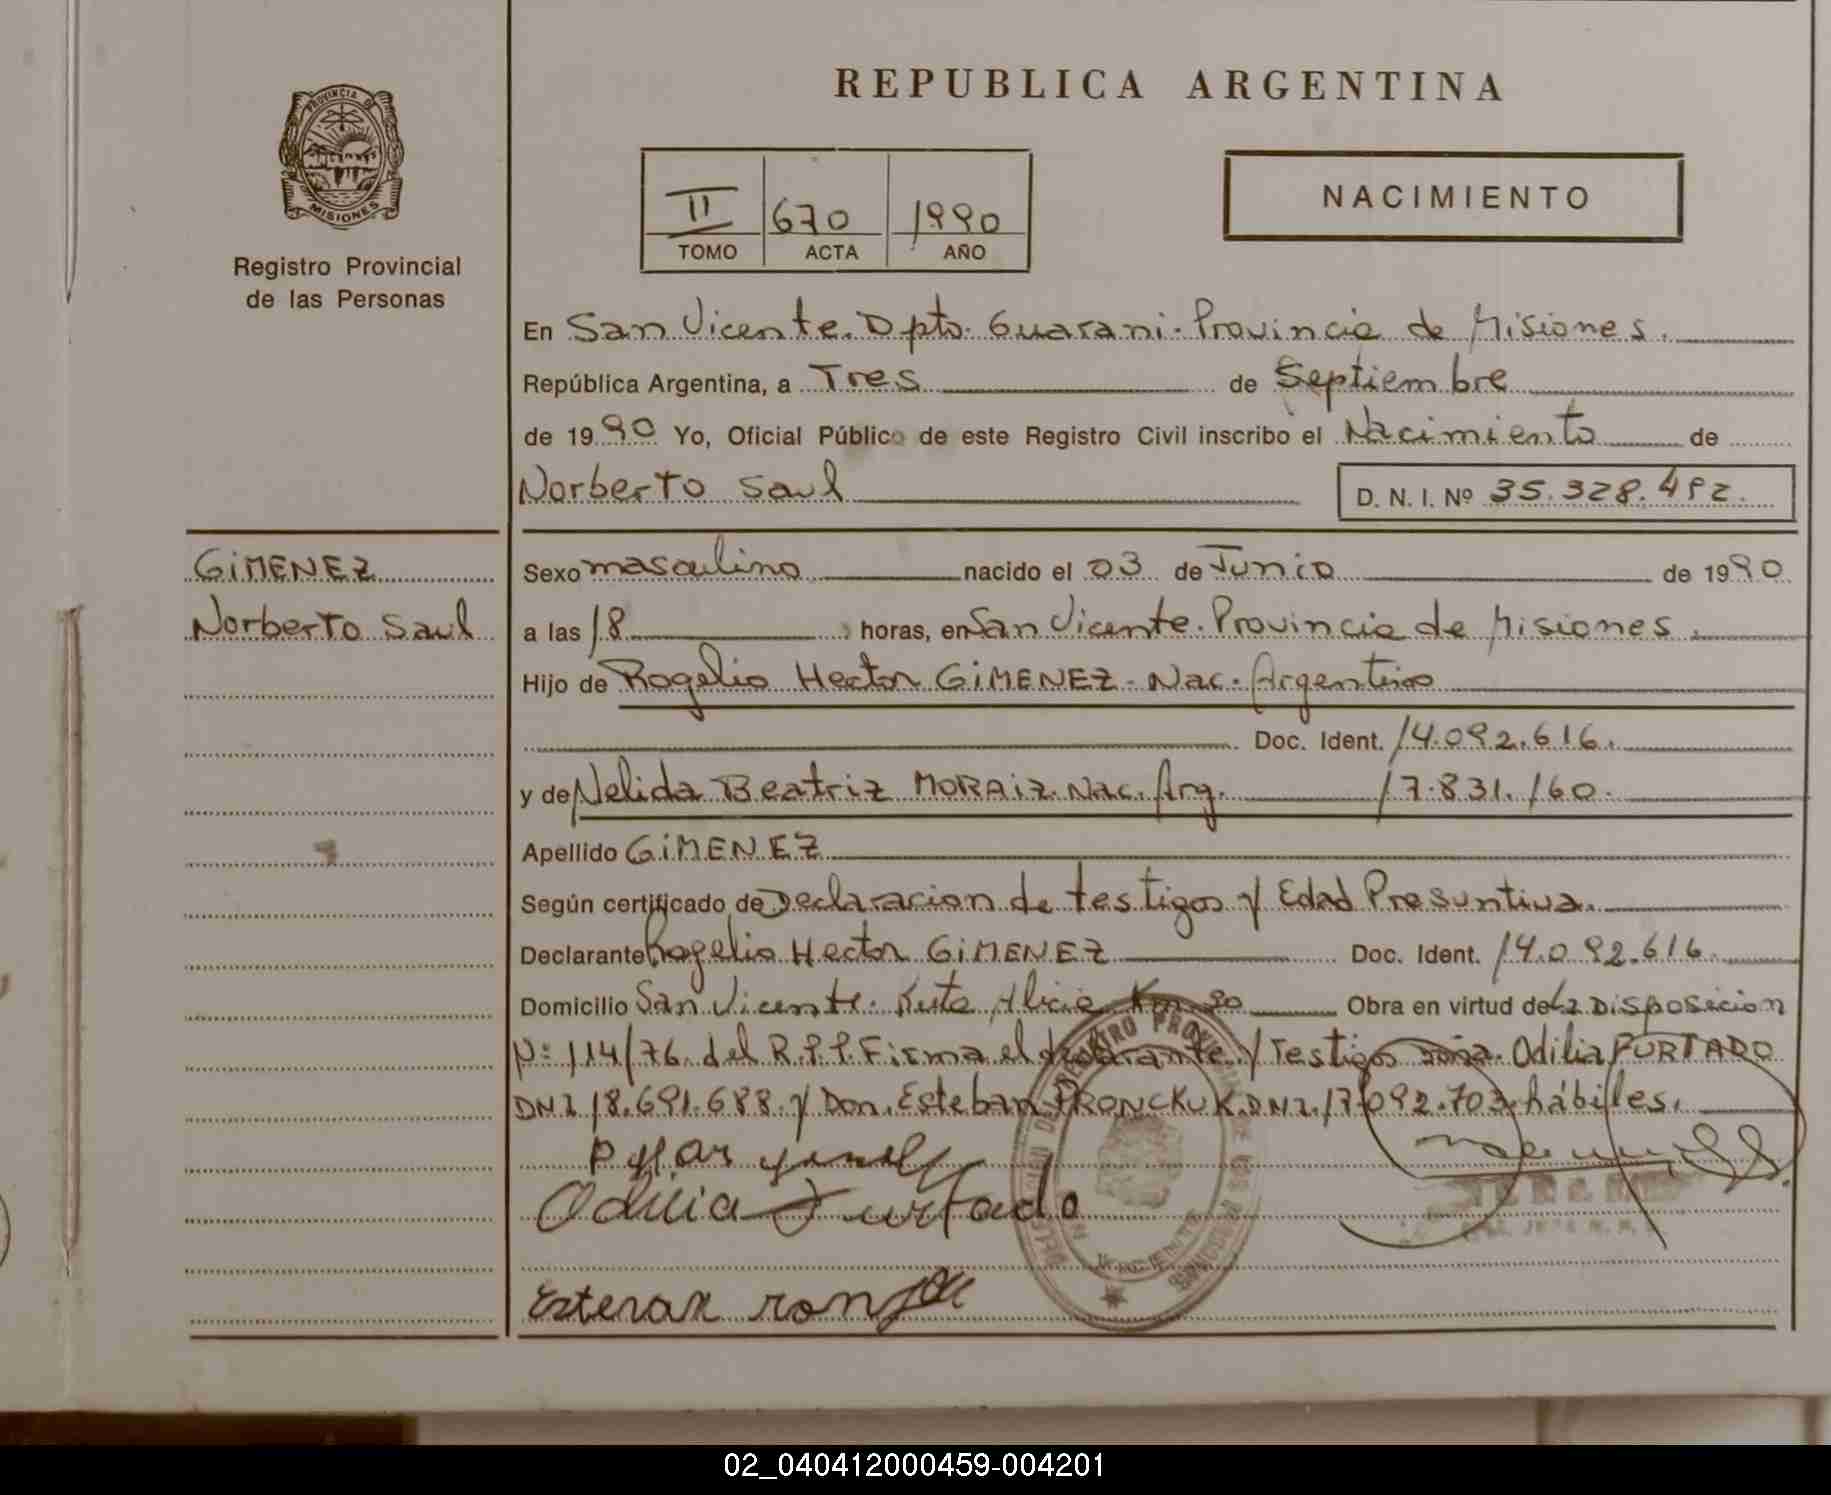 REPUBLICA ARGENTINA
PROVINCIA DE
MISIONES
Registro Provincial
de las Personas
II 670 1990
TOMO ACTA AÑO
NACIMIENTO
En San Vicente. Dpto. Guarani. Provincia de Misiones.
República Argentina, a Tres de Septiembre
de 1990 Yo, Oficial Público de este Registro Civil inscribo el Nacimiento de
Norberto Saul D. N. I. Nº 35.328.492.
GiMENEZ
Norberto Saul
Sexo masculino nacido el 03 de Junio de 1990
a las 18 horas, en San Vicente. Provincia de Misiones.
Hijo de Rogelio Hector GiMENEZ - Nac. Argentino
Doc. Ident. 14.092.616.
y de Nelida Beatriz MORAiz. Nac. Arg. 17.831.160.
Apellido GiMENEZ
Según certificado de Declaracion de testigos y Edad Presuntiva.
Declarante Rogelio Hector GiMENEZ Doc. Ident. 14.092.616.
Domicilio San Vicente. Ruta Alicia Km 90 Obra en virtud de La Disposicion
Nº 114/76 del R.P.P. Firma el declarante y Testigos Doña Odilia FURTADO
DNI 18.691.688 y Don. Esteban PRONCKUK. DNI. 17.092.703 hábiles.
Odilia Furtado